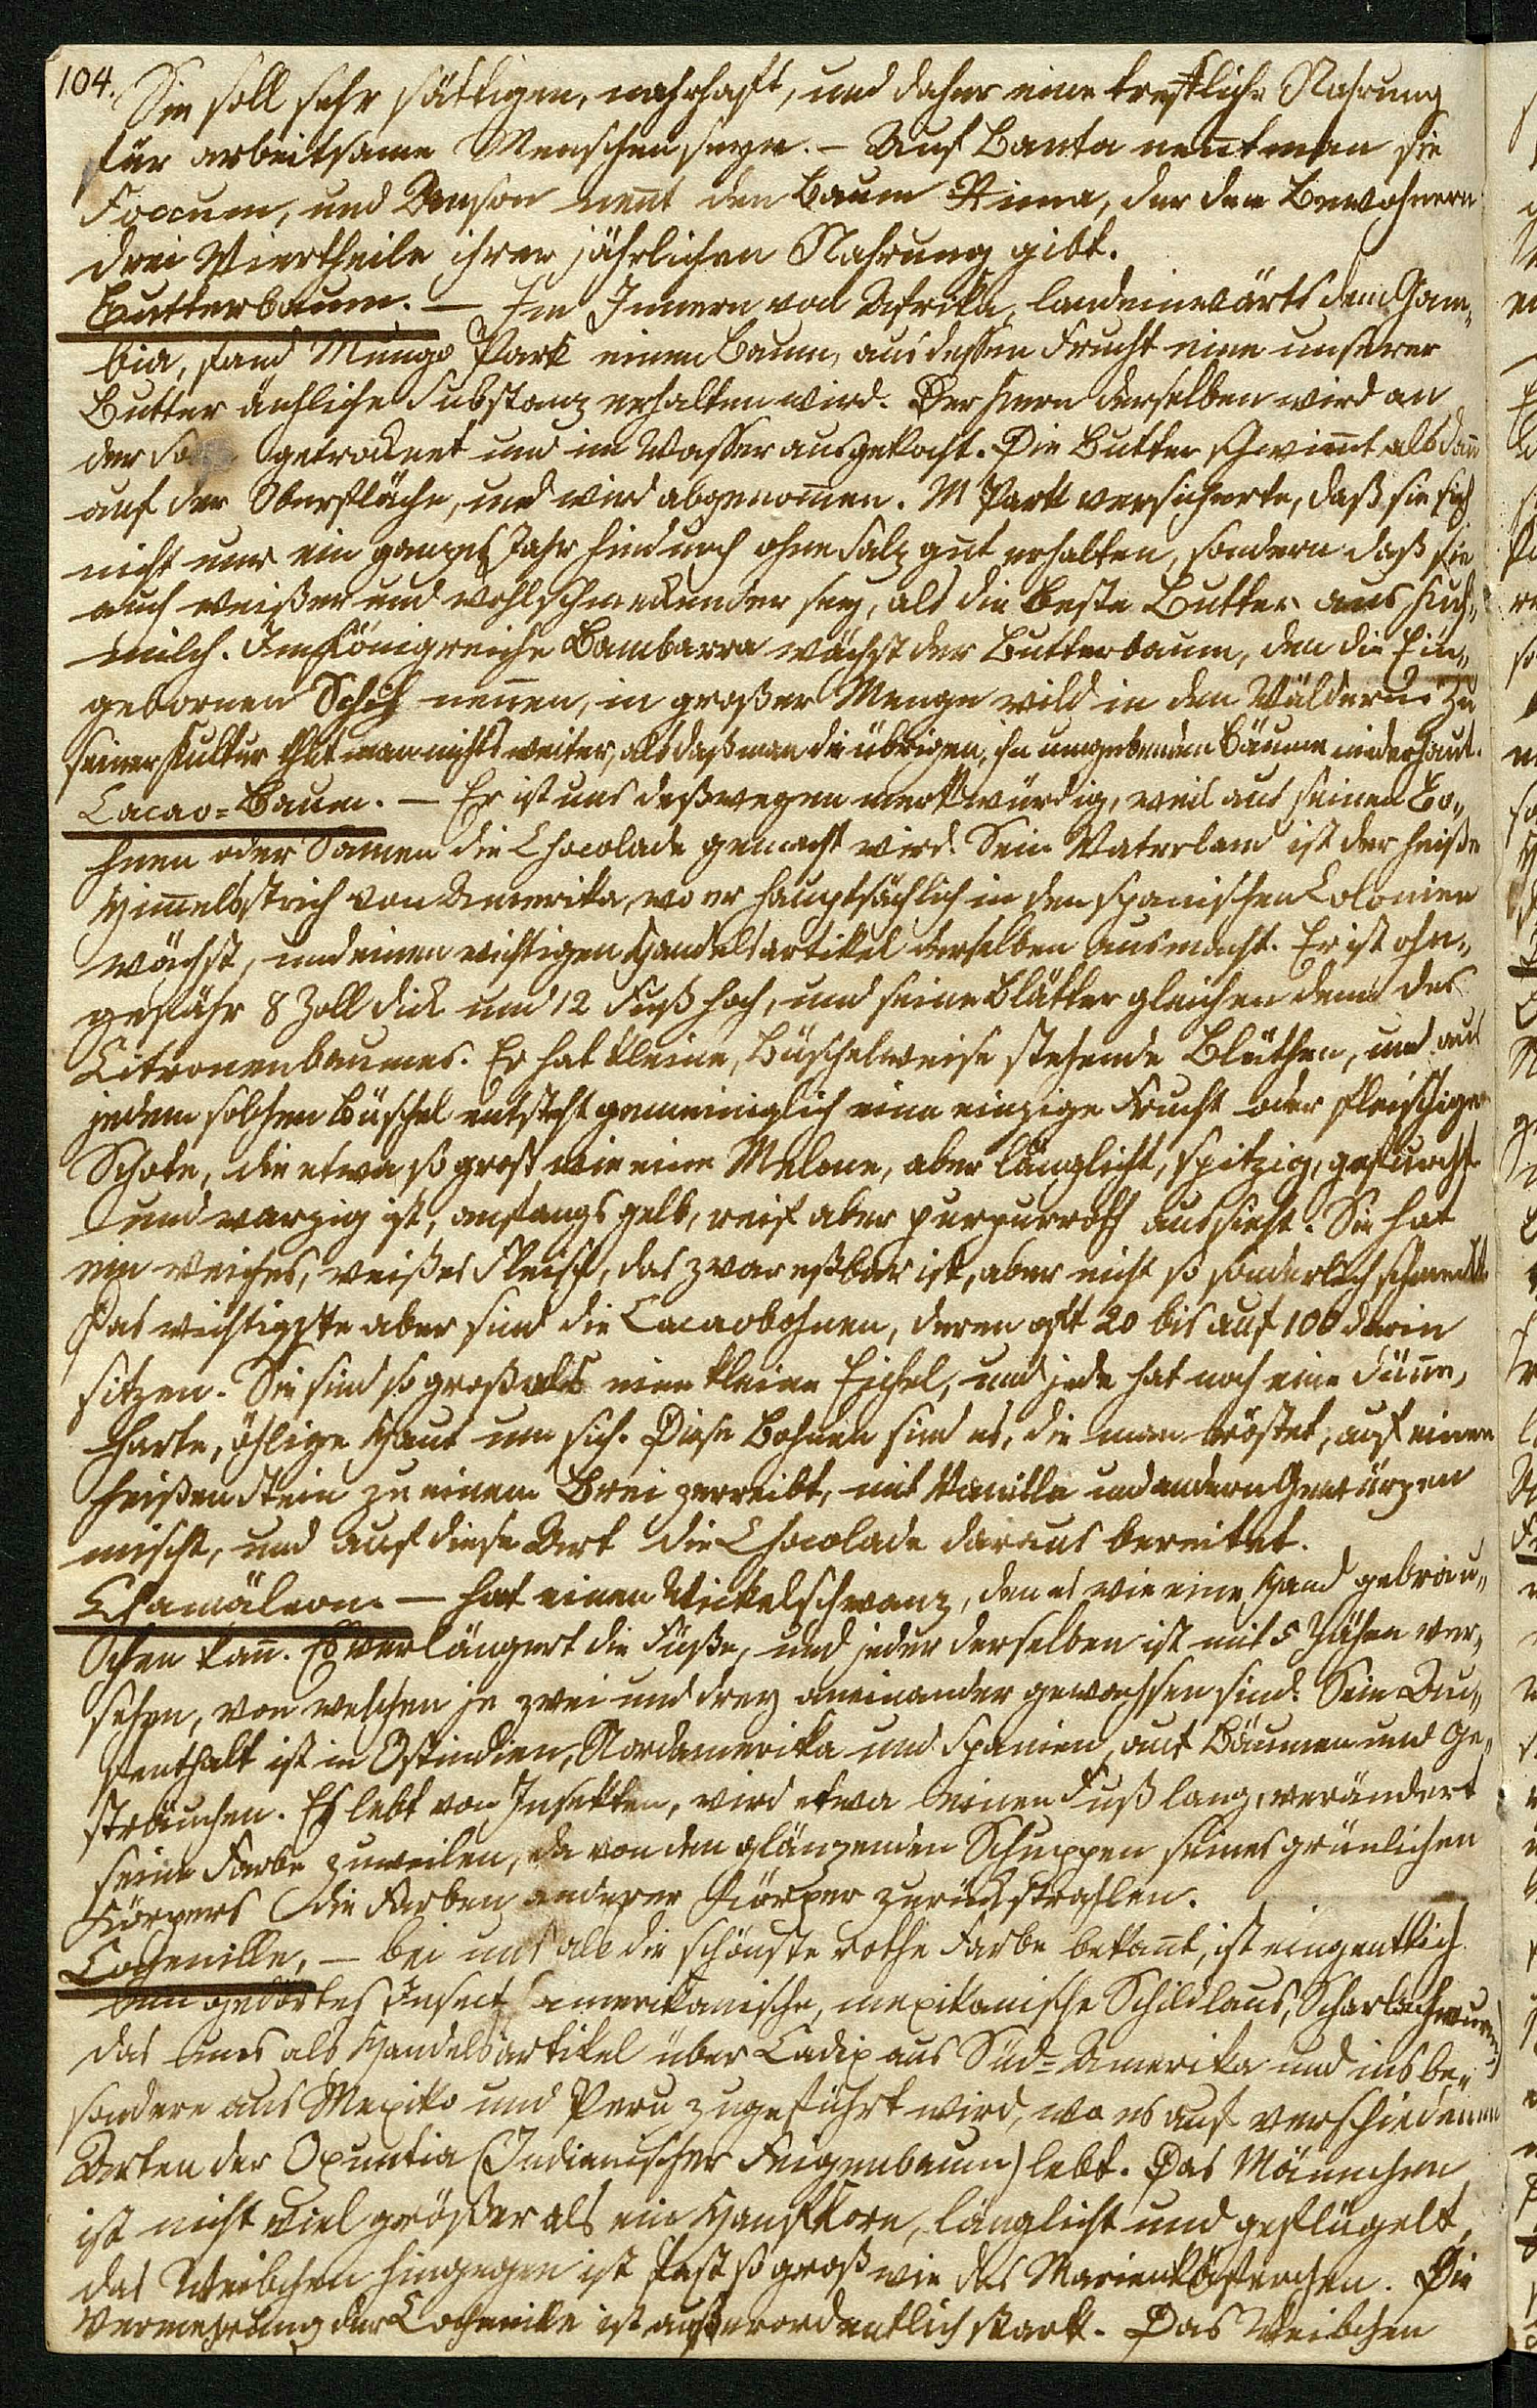 104.
Sie soll sehr sättigen, nahrhaft, und daher eine trefliche Nahrung
für arbeitsame Menschen seyn. – Auf Banta nent man sie
Foccum, und Dawson nent den Baum Rima, der den Bewohnern
drei Viertheile ihrer jährlichen Nahrung gibt.
Butterbaum. – Im Innern von Afrika, landeinwärts dem Gam„
bia, fand Mungo Park einen Baum, aus dessen Frucht eine unserer
Butter ähnliche Substanz erhalten wird. Der Kern derselben wird an
der So getrocknet und im Wasser ausgekocht. Die Butter schwimt alsdann
auf der Oberfläche, und wird abgenomen. M Park versicherte, daß sie sich
nicht nur ein ganzes Jahr hindurch ohne Salz gut erhalten, sondern daß sie
auch weißer und wohlschmekender sey, als die beste Butter aus Kuh„
milch. Im Königreiche Bambarra wächst der Butterbaum, den die Ein„
gebornen Schih nennen, in großer Menge wild in den Wäldern. Zu
seiner Kultur thut man nichts weiter, als daß man die übrigen, ihn umgebenden Bäume niederhaut.
Cacao-Baum. – Er ist uns deßwegen merkwürdig, weil aus seinen Bo„
hnen oder Samen die Chocolade gemacht wird. Sein Vaterland ist der heiße
Himelsstrich von Amerika, wo er hauptsächlich in den spanischen Colonien
wächst, und einen wichtigen Handelsartikel derselben ausmacht. Er ist ohn„
gefähr 8 Zoll dick und 12 Fuß hoch, und seine Blätter gleichen denen des
Citronenbaumes. Er hat kleine, büschelweise stehende Blüthen, und aus
jedem solchen Büschel entsteht gemeiniglich eine einzige Frucht oder fleischige
Schote, die etwa so groß wie eine Melone, aber länglicht, spitzig, gefurcht
und warzig ist, anfangs gelb, reif aber purpurroth aussieht. Sie hat
ein weiches, weißes Fleisch, das zwar eßbar ist, aber nicht so sonderlich schmeckt.
Das wichtigste aber sind die Cacaobohnen, deren oft 20 bis auf 100 darin
sitzen. Sie sind so groß als eine kleine Eichel, und jede hat noch eine dünne,
harte, öhlige Haut um sich. Diese Bohnen sind es, die man röstet, auf einem
heißen Stein zu einem Brei zerreibt, mit Vanille und andern Gewürzen
mischt, und auf diese Art die Chocolade daraus bereitet.
Chamäleon. – hat einen Wickelschwanz, den es wie eine Hand gebrau„
chen kann. Es verlängert die Füße, und jeder derselben ist mit 5 Zähen ver„
sehen, von welchen je zwei und drey aneinander gewachsen sind. Sein Auf„
enthalt ist in Ostindien, Nordamerika und Spanien, auf Bäumen und Ge„
sträuchen. Es lebt von Insekten, wird etwa einen Fuß lang, verändert
seine Farbe zuweilen, da von den glänzenden Schuppen seines grünlichen
Körpers die Farben anderer Körper zurückstrahlen.
Cochenille, – bei uns als die schönste rothe Farbe bekannt, ist eingentlich
ein gedörtes Insect (amerikanische, mexikanische Schildlaus, Scharlachwurm)
das uns als Handelsartikel über Cadix aus Süd-Amerika und insbe„
sondere aus Mexiko und Peru zugeführt wird, wo es auf verschiedenen
Arten der Opuntia (Indianischer Feigenbaum) lebt. Das Männchen
ist nicht viel größer als ein Hanfkorn, länglicht und geflügelt,
das Weibchen hingegen ist fast so groß wie das Marienkäferchen. Die
Vermehrung der Cochenille ist außerordentlich stark. Das Weibchen